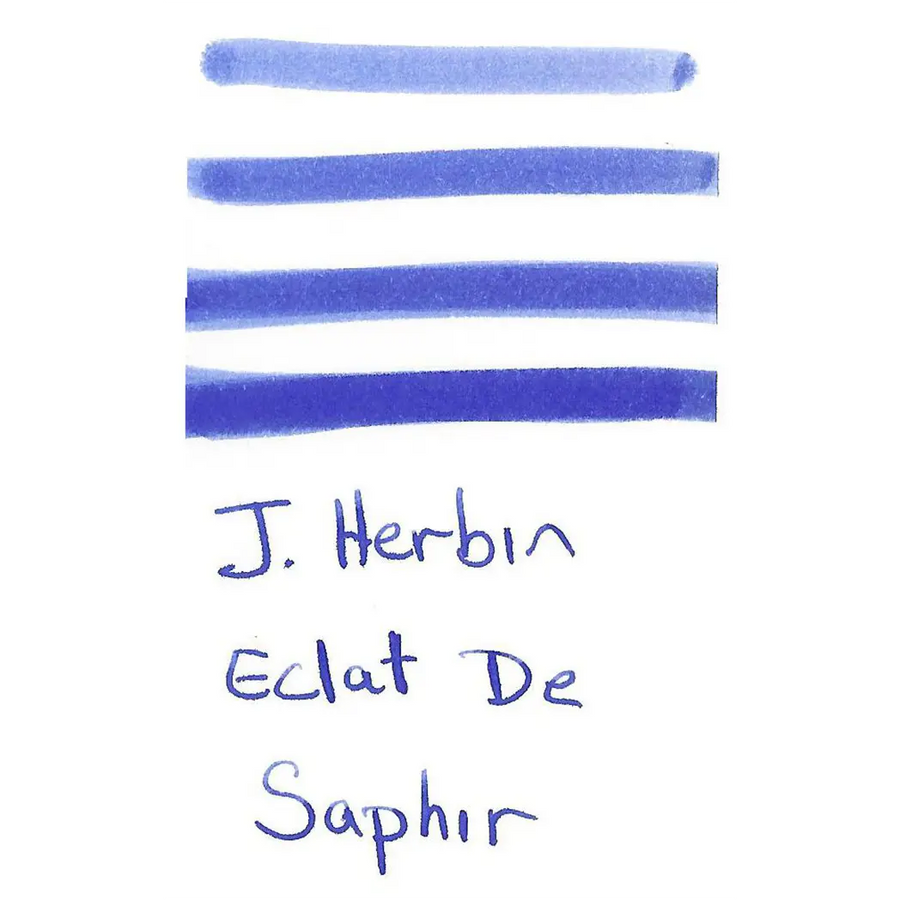 J. Herbin
Eclat De
Saphir